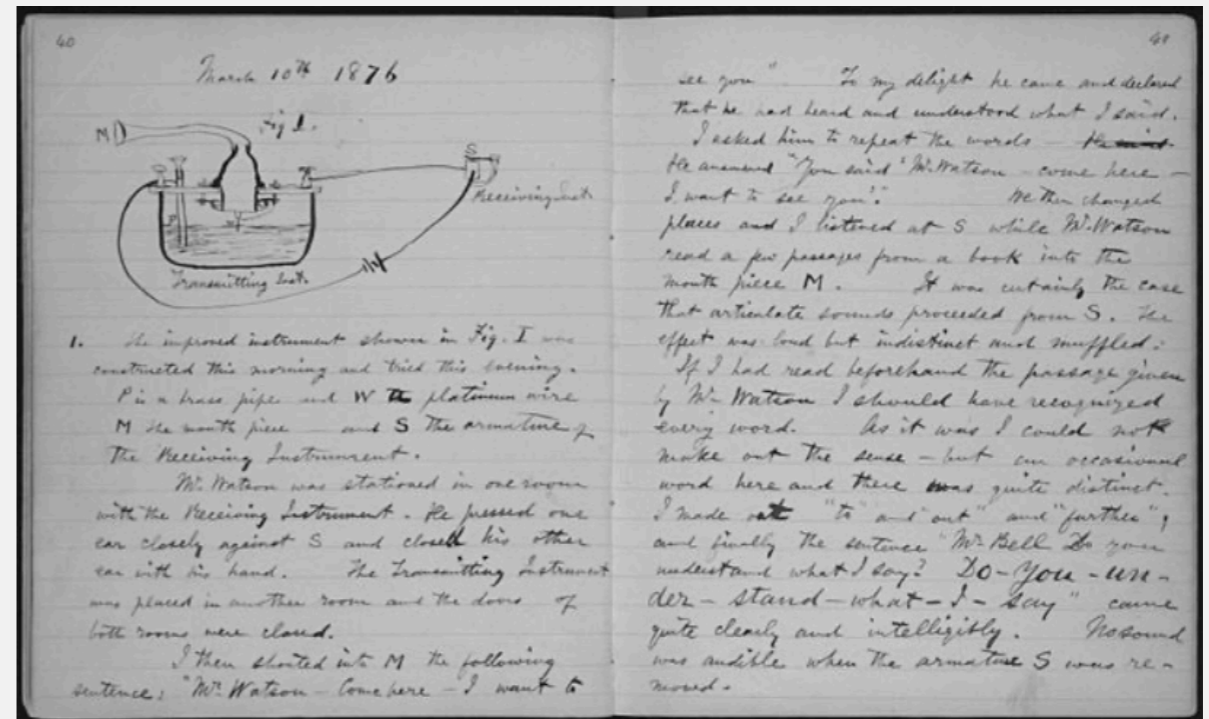 40
March 10th 1876
Fig I.
M
S
Receiving Inst.
P
W
Transmitting Inst.
1. The improved instrument shown in Fig. I was
constructed this morning and tried this evening.
P is a brass pipe and W the platinum wire
M the mouth piece — and S the armature of
the Receiving Instrument.
Mr. Watson was stationed in one room
with the Receiving Instrument. He pressed one
ear closely against S and closed his other
ear with his hand. The Transmitting Instrument
was placed in another room and the doors of
both rooms were closed.
I then shouted into M the following
sentence: "Mr. Watson — Come here — I want to
41
see you" To my delight he came and declared
that he had heard and understood what I said.
I asked him to repeat the words — He said
He answered "You said 'Mr. Watson — come here —
I want to see you'." We then changed
places and I listened at S while Mr. Watson
read a few passages from a book into the
mouth piece M. It was certainly the case
that articulate sounds proceeded from S. The
effect was loud but indistinct and muffled.
If I had read beforehand the passage given
by Mr. Watson I should have recognized
every word. As it was I could not
make out the sense — but an occasional
word here and there was quite distinct.
I made out "to" and "out" and "further";
and finally the sentence "Mr. Bell Do you
understand what I say? Do-you-un-
der-stand-what-I-say" came
quite clearly and intelligibly. No sound
was audible when the armature S was re-
moved.